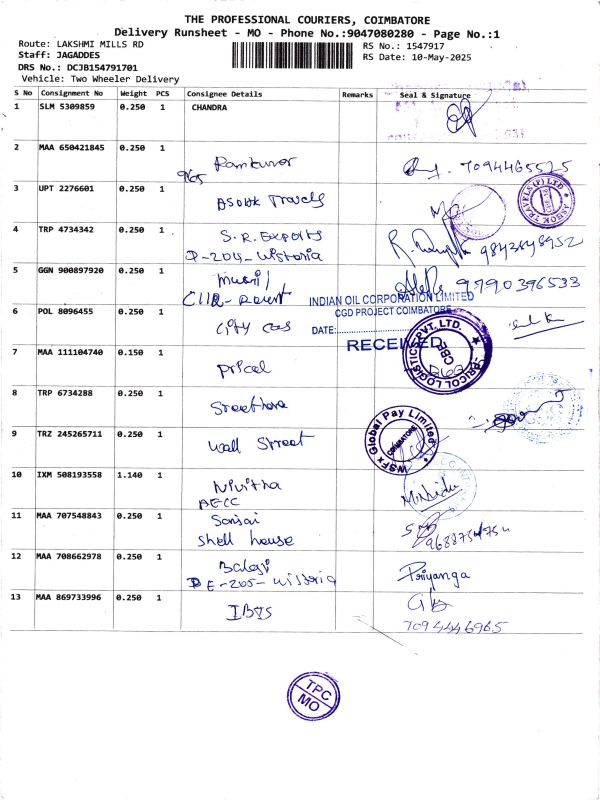 THE PROFESSIONAL COURIERS, COIMBATORE
Delivery Runsheet - MO - Phone No.:9047080280 - Page No.:1
Route: LAKSHMI MILLS RD
RS No.: 1547917
Staff: JAGADDES
RS Date: 10-May-2025
DRS No.: DCJB154791701
Vehicle: Two Wheeler Delivery
S No Consignment No Weight PCS Consignee Details Remarks Seal & Signature
1 SLM 5309859 0.250 1 CHANDRA
2 MAA 650421845 0.250 1 Ramkumar
3 UPT 2276601 0.250 1 ASOUK Travels
ASHOK TRAVELS (P) LTD
4 TRP 4734342 0.250 1 S.R. Exports 9843848952
D-204-Wistoria
5 GGN 900897920 0.250 1 9790396533
INDIAN OIL CORPORATION LIMITED
CGD PROJECT COIMBATORE
DATE:
RECEIVED
6 POL 8096455 0.250 1 City Gas
7 MAA 111104740 0.150 1 Pricol
PRICOL LOGISTICS PVT. LTD.
CBE
8 TRP 6734288 0.250 1
9 TRZ 245265711 0.250 1 Wall Street
WSFx Global Pay Limited
COIMBATORE
10 IXM 508193558 1.140 1 Nivitha
AECC
11 MAA 707548843 0.250 1
Shell house
12 MAA 708662978 0.250 1 Balaji Priyanga
E-205-Wistoria
13 MAA 869733996 0.250 1 IBYS
7094446965
TPC
MO